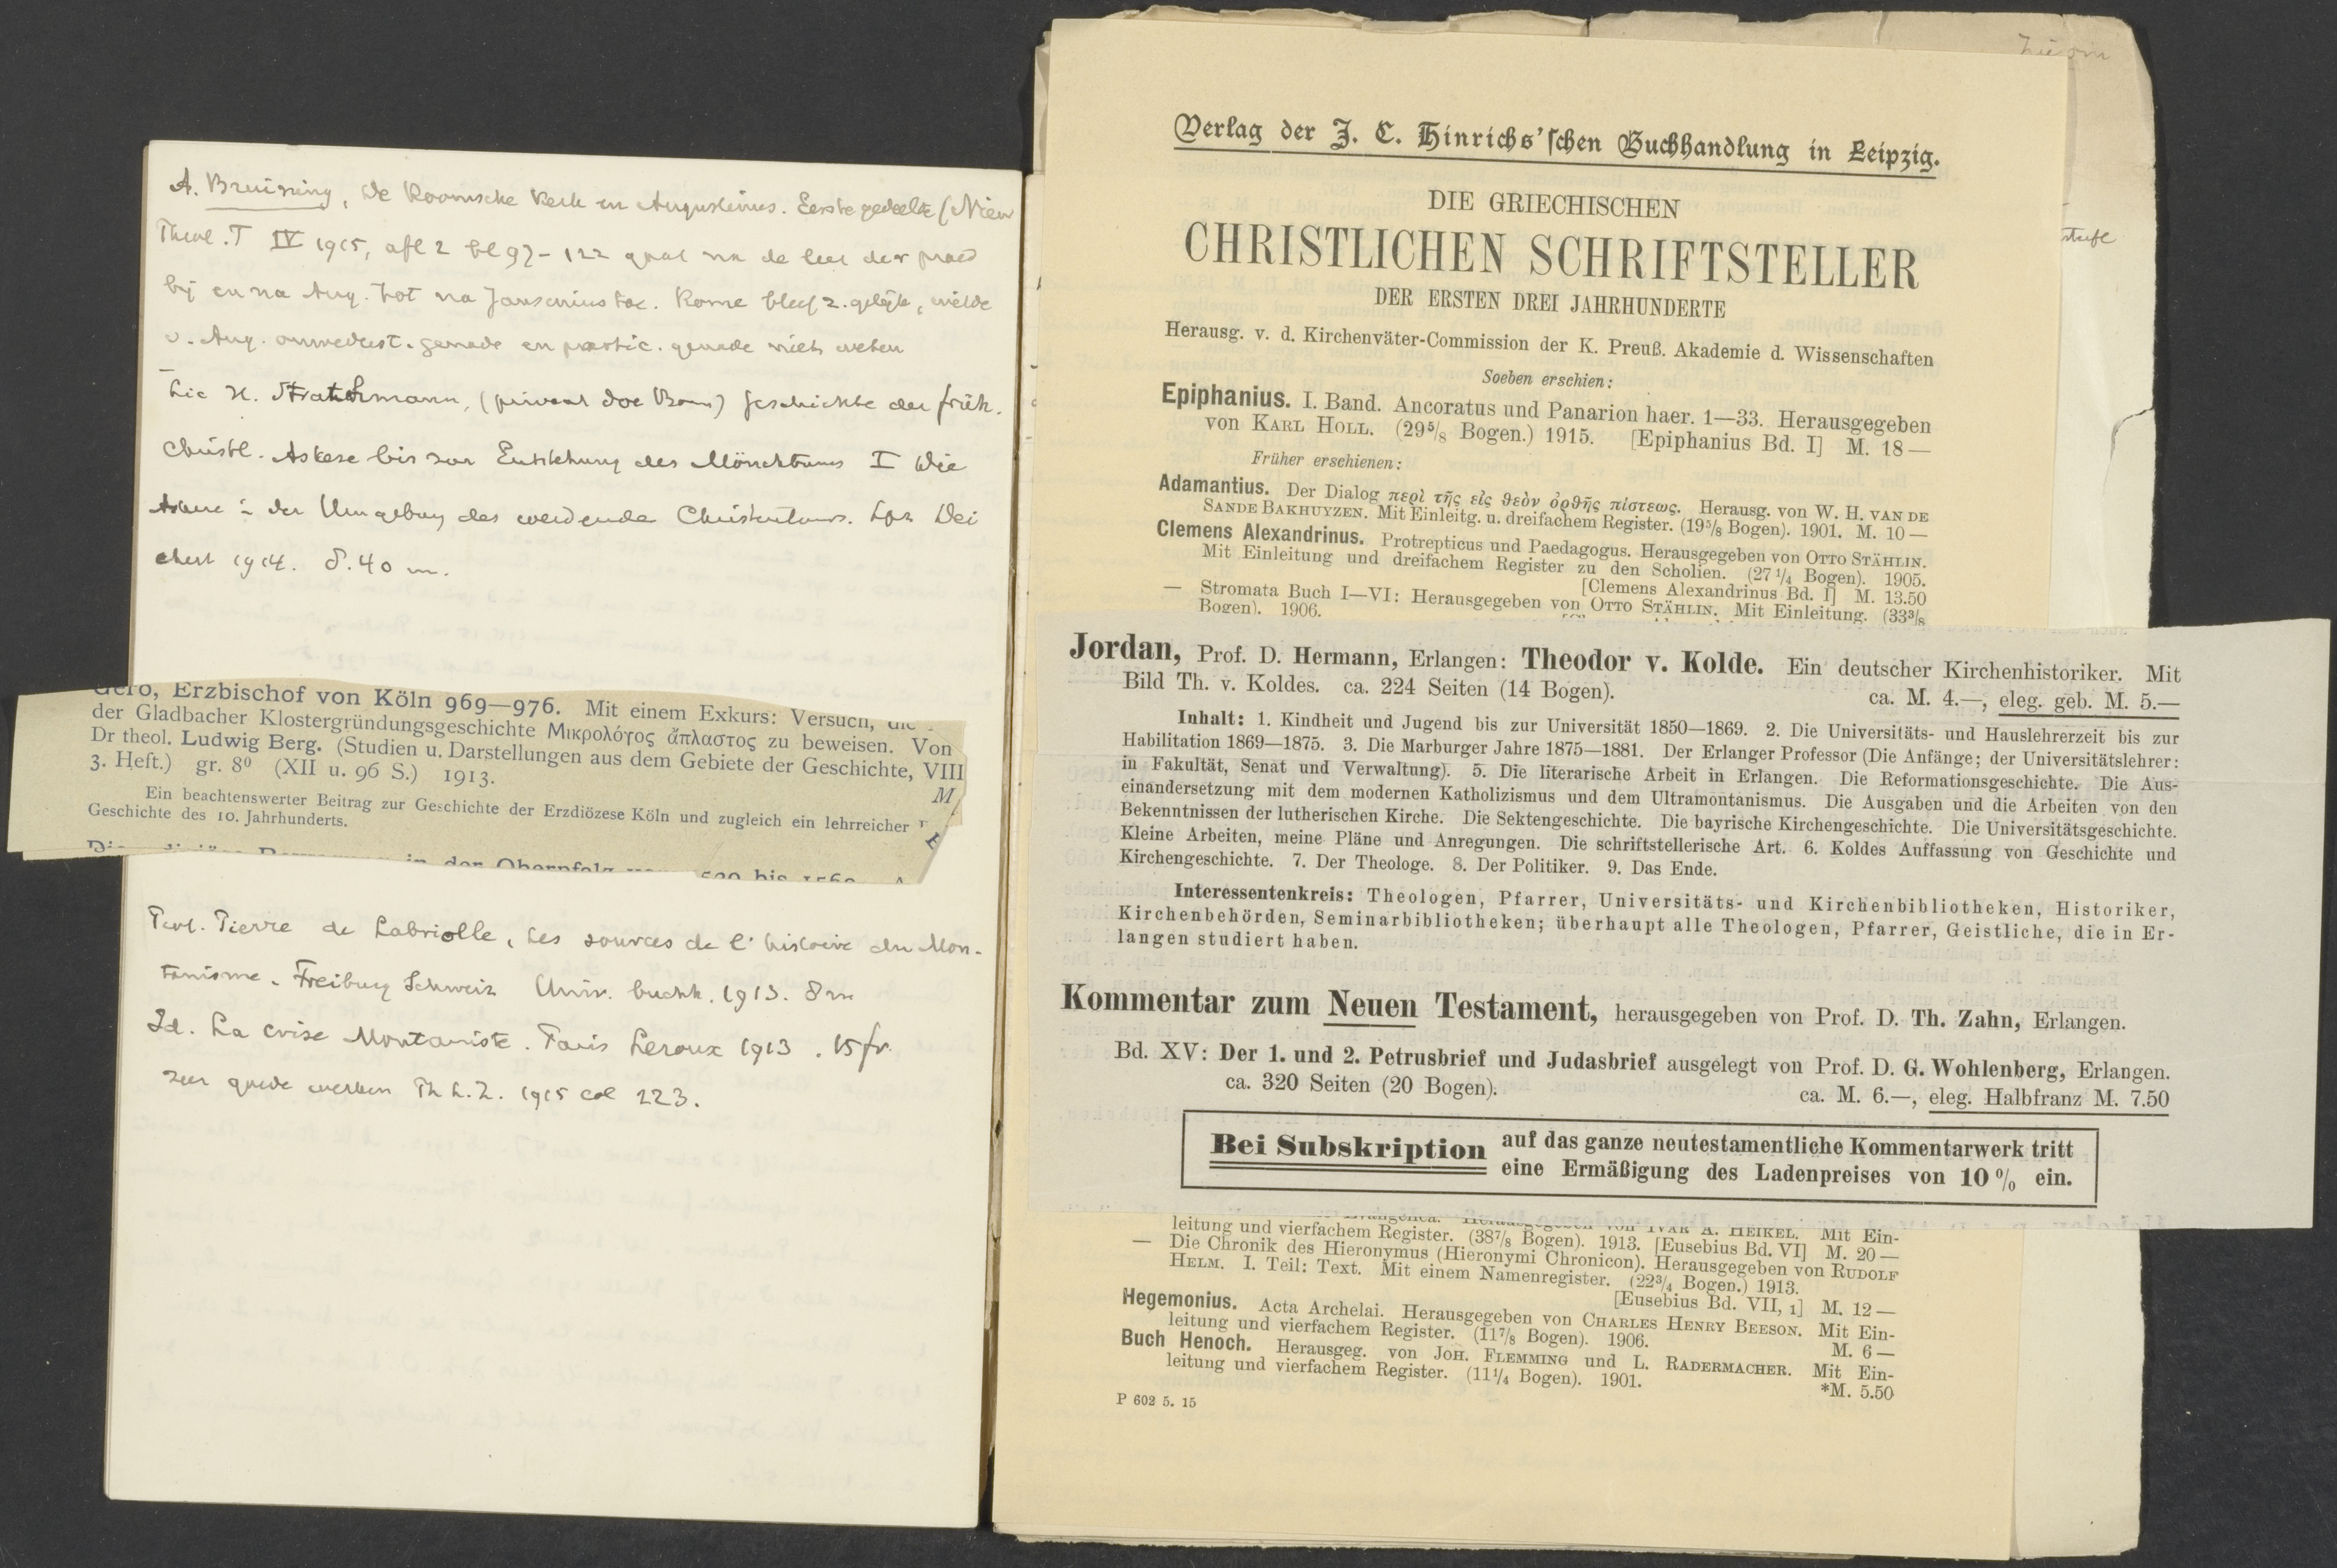 A. Bruining, De Roomsche Kerk en Augustinus. Eerste gedeelte (Nieuw
Theol. T IV 1915, afl 2 bl 97-122 gaat na de leer der praed
bij en na Aug. tot na Jansenius toe. Rome bleef z. gelijk, wilde
v. Aug. genade en genade niets weten
Lic H. Strathmann, (privaat doc Bonn) Geschichte der früh.
Christl. Askese bis zur Entstehung des Mönchtums I Die
Askese in der Umgebung des werdenden Christentums. Lpz Dei
chert 1914. 8.40 m.
Gero, Erzbischof von Köln 969—976. Mit einem Exkurs: Versuch, die
der Gladbacher Klostergründungsgeschichte Μικρολόγος ἄπλαστος zu beweisen. Von
Dr theol. Ludwig Berg. (Studien u. Darstellungen aus dem Gebiete der Geschichte, VIII
3. Heft.) gr. 8⁰ (XII u. 96 S.) 1913. M
Ein beachtenswerter Beitrag zur Geschichte der Erzdiözese Köln und zugleich ein lehrreicher
Geschichte des 10. Jahrhunderts.
in der Oberpfalz 1520 bis 1560
Pierre de Labriolle, Les sources de l'histoire du Mon-
tanisme. Freiburg Schweiz Univ. buchh. 1913. 8 m
Id. La crise Montaniste. Paris Leroux 1913. 15 fr.
zeer goede werken Th L.Z. 1915 col 223.
Verlag der J. C. Hinrichs'schen Buchhandlung in Leipzig.
DIE GRIECHISCHEN
CHRISTLICHEN SCHRIFTSTELLER
DER ERSTEN DREI JAHRHUNDERTE
Herausg. v. d. Kirchenväter-Commission der K. Preuß. Akademie d. Wissenschaften
Soeben erschien:
Epiphanius. I. Band. Ancoratus und Panarion haer. 1—33. Herausgegeben
von KARL HOLL. (29⁵/₈ Bogen.) 1915. [Epiphanius Bd. I] M. 18—
Früher erschienen:
Adamantius. Der Dialog περὶ τῆς εἰς θεὸν ὀρθῆς πίστεως. Herausg. von W. H. VAN DE
SANDE BAKHUYZEN. Mit Einleitg. u. dreifachem Register. (19⁵/₈ Bogen). 1901. M. 10—
Clemens Alexandrinus. Protrepticus und Paedagogus. Herausgegeben von OTTO STÄHLIN.
Mit Einleitung und dreifachem Register zu den Scholien. (27¹/₄ Bogen). 1905.
[Clemens Alexandrinus Bd. I] M. 13.50
— Stromata Buch I—VI: Herausgegeben von OTTO STÄHLIN. Mit Einleitung. (33³/₈
Bogen). 1906.
Jordan, Prof. D. Hermann, Erlangen: Theodor v. Kolde. Ein deutscher Kirchenhistoriker. Mit
Bild Th. v. Koldes. ca. 224 Seiten (14 Bogen). ca. M. 4.—, eleg. geb. M. 5.—
Inhalt: 1. Kindheit und Jugend bis zur Universität 1850—1869. 2. Die Universitäts- und Hauslehrerzeit bis zur
Habilitation 1869—1875. 3. Die Marburger Jahre 1875—1881. Der Erlanger Professor (Die Anfänge; der Universitätslehrer:
in Fakultät, Senat und Verwaltung). 5. Die literarische Arbeit in Erlangen. Die Reformationsgeschichte. Die Aus-
einandersetzung mit dem modernen Katholizismus und dem Ultramontanismus. Die Ausgaben und die Arbeiten von den
Bekenntnissen der lutherischen Kirche. Die Sektengeschichte. Die bayrische Kirchengeschichte. Die Universitätsgeschichte.
Kleine Arbeiten, meine Pläne und Anregungen. Die schriftstellerische Art. 6. Koldes Auffassung von Geschichte und
Kirchengeschichte. 7. Der Theologe. 8. Der Politiker. 9. Das Ende.
Interessentenkreis: Theologen, Pfarrer, Universitäts- und Kirchenbibliotheken, Historiker,
Kirchenbehörden, Seminarbibliotheken; überhaupt alle Theologen, Pfarrer, Geistliche, die in Er-
langen studiert haben.
Kommentar zum Neuen Testament, herausgegeben von Prof. D. Th. Zahn, Erlangen.
Bd. XV: Der 1. und 2. Petrusbrief und Judasbrief ausgelegt von Prof. D. G. Wohlenberg, Erlangen.
ca. 320 Seiten (20 Bogen). ca. M. 6.—, eleg. Halbfranz M. 7.50
Bei Subskription auf das ganze neutestamentliche Kommentarwerk tritt
eine Ermäßigung des Ladenpreises von 10 % ein.
Evangelica. Herausgegeben von IVAR A. HEIKEL. Mit Ein-
leitung und vierfachem Register. (38⁷/₈ Bogen). 1913. [Eusebius Bd. VI] M. 20—
— Die Chronik des Hieronymus (Hieronymi Chronicon). Herausgegeben von RUDOLF
HELM. I. Teil: Text. Mit einem Namenregister. (22³/₄ Bogen.) 1913.
[Eusebius Bd. VII, 1] M. 12—
Hegemonius. Acta Archelai. Herausgegeben von CHARLES HENRY BEESON. Mit Ein-
leitung und vierfachem Register. (11⁷/₈ Bogen). 1906. M. 6—
Buch Henoch. Herausgeg. von JOH. FLEMMING und L. RADERMACHER. Mit Ein-
leitung und vierfachem Register. (11¹/₄ Bogen). 1901. *M. 5.50
P 602 5. 15